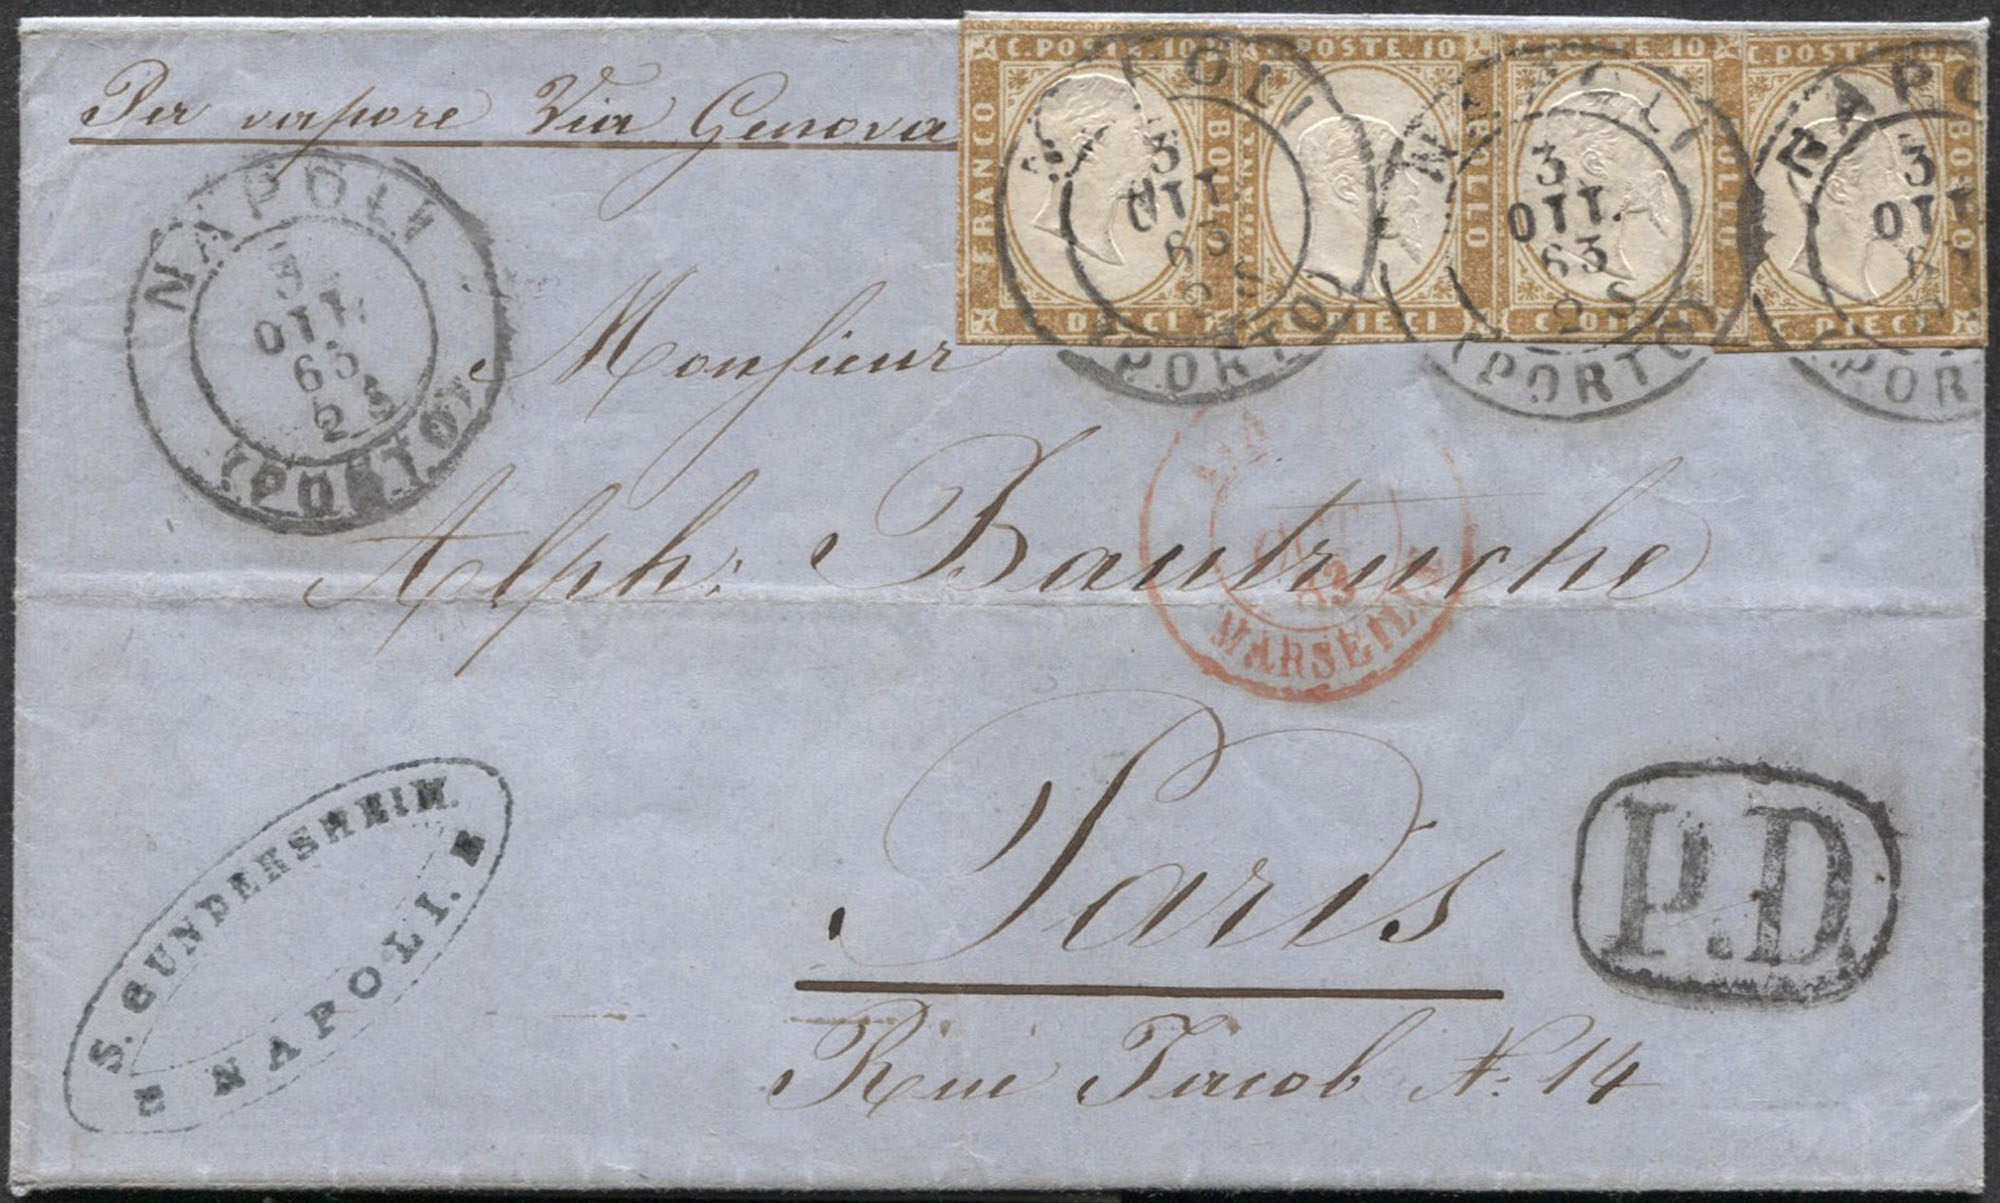 Per vapore Via Genova
C. POSTE. 10
C. POSTE. 10
C. POSTE. 10
C. POSTE. 10
FRANCO
BOLLO
FRANCO
BOLLO
BOLLO
BOLLO
C. DIECI
C. DIECI
C. DIECI
C. DIECI
NAPOLI
3
OTT.
63
2 S
(PORTO)
NAPOLI
3
OTT.
63
2 S
(PORTO)
NAPO
3
OTT
63
POR
NAPOLI
OTT.
63
2 S
(PORTO)
Monsieur
Alph: Bautruche
OCT
63
MARSEILLE
Paris
Rue Jacob N: 14
P.D.
S. GUNDERSHEIM.
NAPOLI.